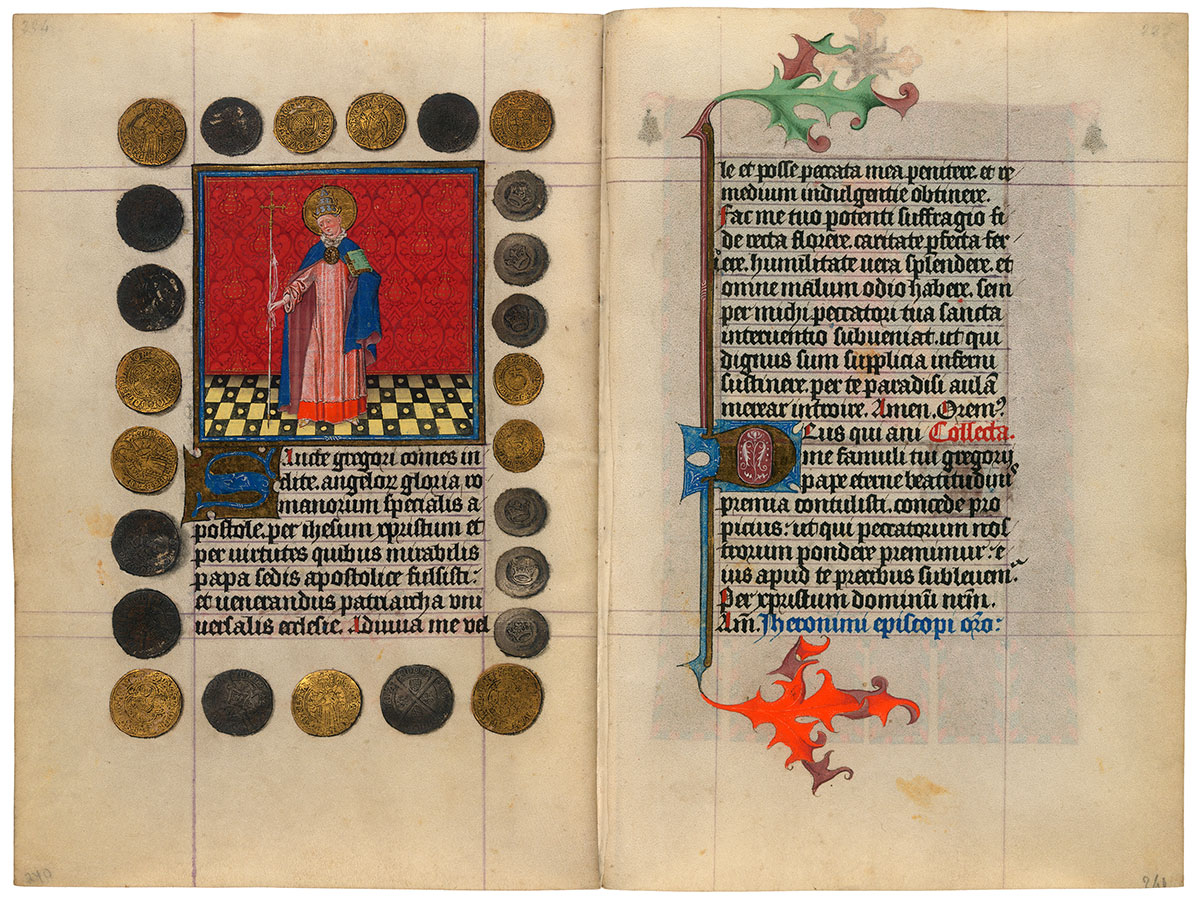 244
Sancte gregori comes in
clite. angelorꝫ gloria ro
manorum specialis a
postole. per thesum xpristum et
per virtutes quibus mirabilis
papa sedis apostolice fulsisti:
et venerandus patriarcha vni
versalis ecclesie. Adiuua me vel
240
le et posse peccata mea penitere. et re
medium indulgentie obtinere.
Fac me tuo potenti suffragio fi
de recta florere. caritate pfecta fer
uere. humilitate vera splendere. et
omne malum odio habere. sem
per michi peccatori tua sancta
interuentio subueniat. ut qui
dignus sum supplicia inferni
sustinere. per te paradisi aulā
merear introire. Amen. Oremꝰ
Deus qui ani Collecta.
me famuli tui gregorij
pape eterne beatitudinis
premia contulisti. concede pro
picius: ut qui peccatorum nos
trorum pondere premimur: e
ius apud te precibus subleuem᷒
Per xpristum dominū nrm̄.
Am̄. Jheronimi episcopi orō:
241